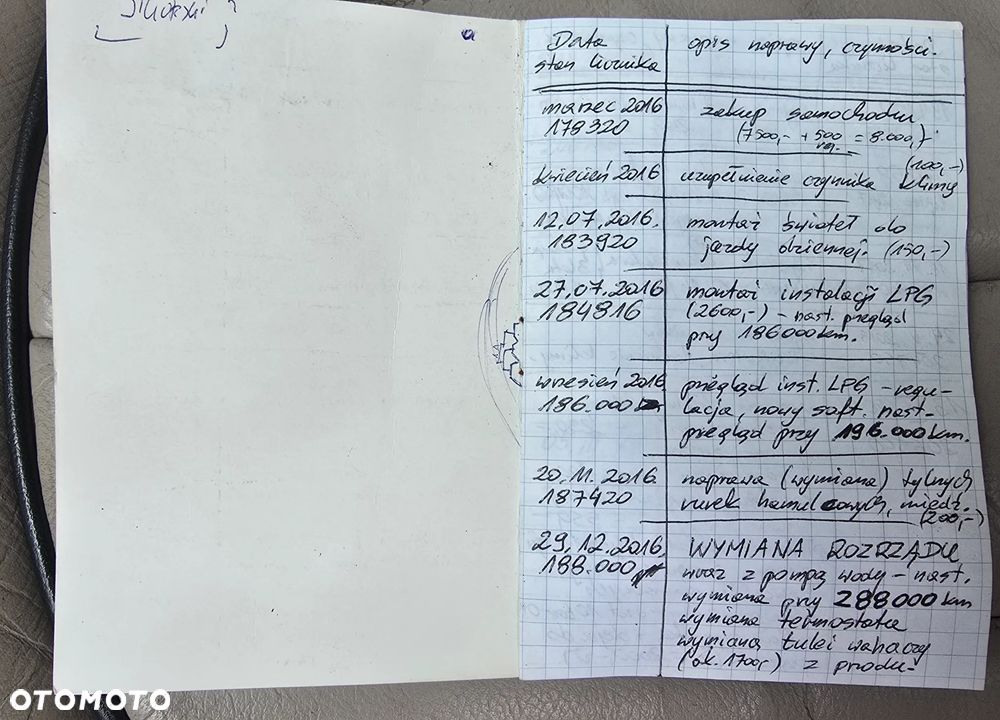 Data
stan licznika
opis naprawy, czynności.
marzec 2016
178320
zakup samochodu
(7500,- + 500 = 8.000,-)
rej.
kwiecień 2016
uzupełnienie czynnika klimy
(100,-)
12.07.2016.
183920
montaż świateł do
jazdy dziennej. (150,-)
27.07.2016
184816
montaż instalacji LPG
(2600,-) - nast. przegląd
przy 186000 km.
wrzesień 2016
186.000
przegląd inst. LPG - regu-
lacja, nowy soft. nast-
przegląd przy 196.000 km.
20.11.2016.
187420
naprawa (wymiana) tylnych
rurek hamulcowych, miedź.
(200,-)
29.12.2016.
188.000
WYMIANA ROZRZĄDU
wraz z pompą wody - nast.
wymiana przy 288000 km
wymiana termostatu
wymiana tulei wahaczy
(ok. 1700,-) z przodu-
OTOMOTO